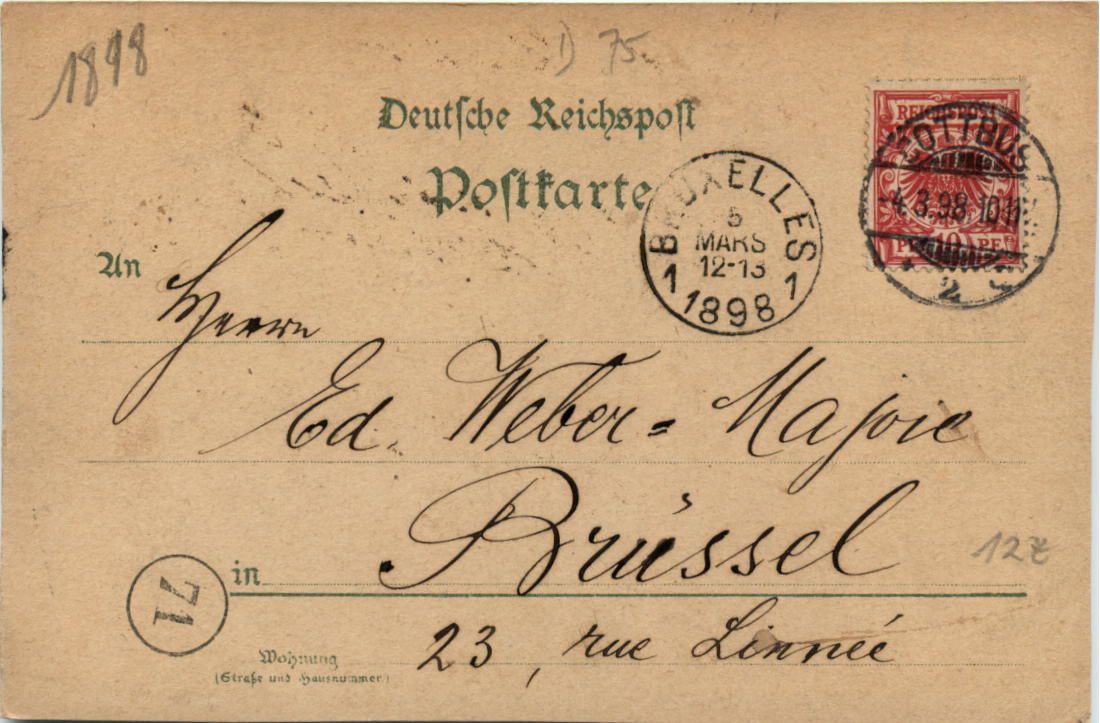 1898
D 75
Deutsche Reichspost
Postkarte
REICHSPOST
COTTBUS
-4.3.98.10-11
PF 10 PF
2
BRUXELLES
5
MARS
12-13
1 1898 1
An
Herrn
Ed. Weber-Majoie
Brüssel
12 Z
in
71
23, rue Linnée
Wohnung
(Straße und Hausnummer)